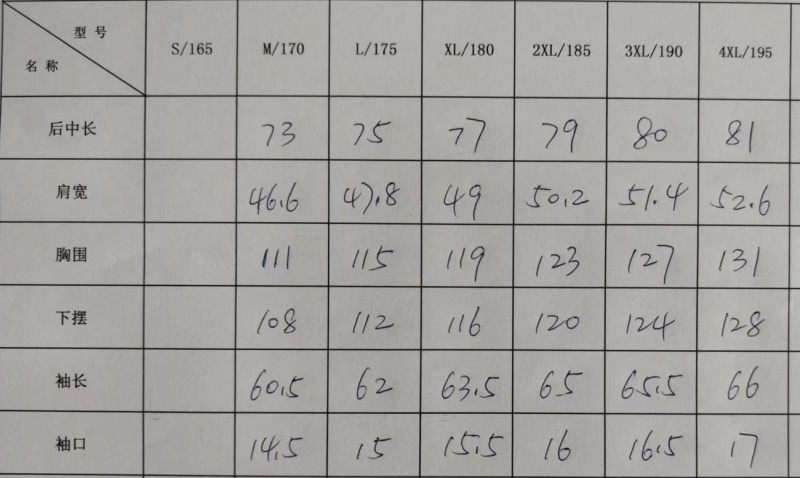 型号
名称 S/165 M/170 L/175 XL/180 2XL/185 3XL/190 4XL/195
后中长 73 75 77 79 80 81
肩宽 46.6 47.8 49 50.2 51.4 52.6
胸围 111 115 119 123 127 131
下摆 108 112 116 120 124 128
袖长 60.5 62 63.5 65 65.5 66
袖口 14.5 15 15.5 16 16.5 17